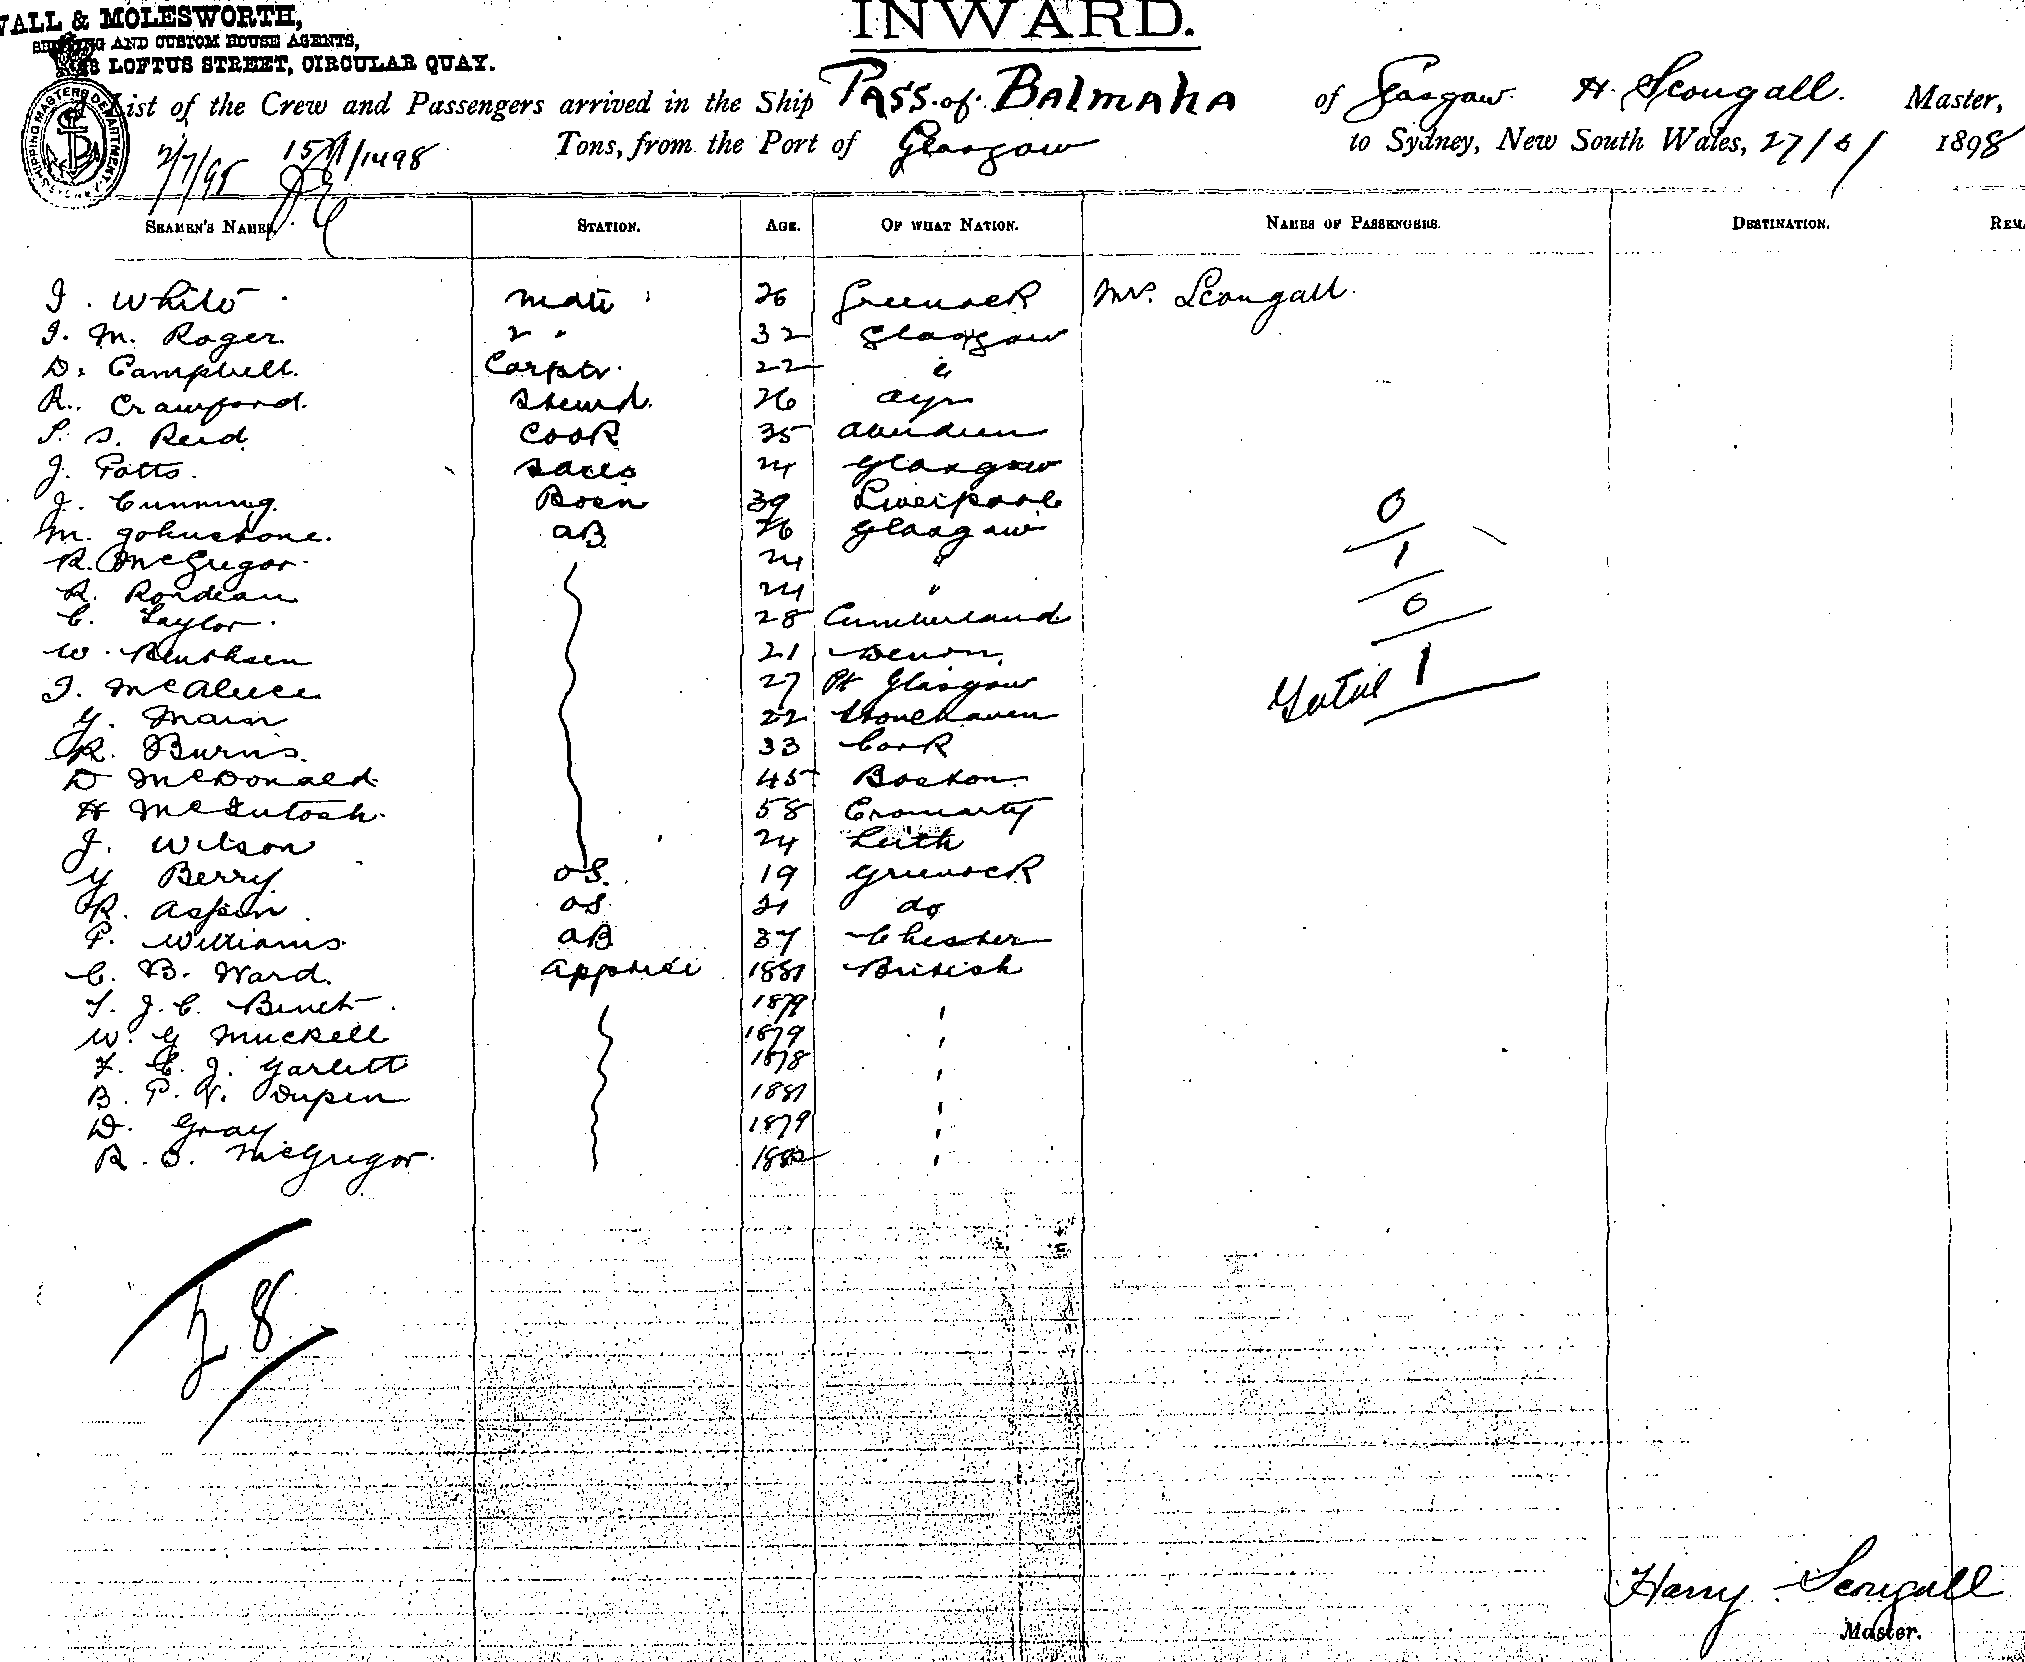 WALL & MOLESWORTH,
SHIPPING AND CUSTOM HOUSE AGENTS,
LOFTUS STREET, CIRCULAR QUAY.
INWARD.
List of the Crew and Passengers arrived in the Ship Pass of Balmaha of Glasgow H. Scougall. Master,
Tons, from the Port of Glasgow to Sydney, New South Wales, 27/6/ 1898
SHIPPING MASTERS DEPARTMENT
SEAMEN'S NAMES. STATION. AGE. OF WHAT NATION. NAMES OF PASSENGERS. DESTINATION. REM
J. White Mate 26 Greenock Mrs. Scougall.
J. M. Roger 2 " 32 Glasgow
D. Campbell. Carptr. 22 "
R. Crawford. Stewd. 26 Ayr
S. Reid. Cook 35 Aberdeen
J. Potts. 24 Glasgow
J. Cunning. Bosn 39 Liverpool
M. Johnstone. AB 26 Glasgow
R. McGregor. 24 "
R. Rondeau 24 "
C. Taylor. 28 Cumberland
W. 21 Devon
27 Pt Glasgow
G. Main 22 Stonehaven
R. Burns. 33 Cork
D McDonald 45 Boston
H McIntosh. 58 Cromarty
J. Wilson 24 Leith
G Berry OS. 19 Greenock
R. Aspin OS 21 do
P. Williams. AB 37 Chester
C. B. Ward. Apptice 1881 British
J. C. 1879 "
W. G Muckell 1879 "
F. E. J. Garlett 1878 "
B. P. V. Dupen 1881 "
D. Gray 1879 "
R. S. McGregor. "
0
1
0
Total 1
28
Harry Scougall
Master.